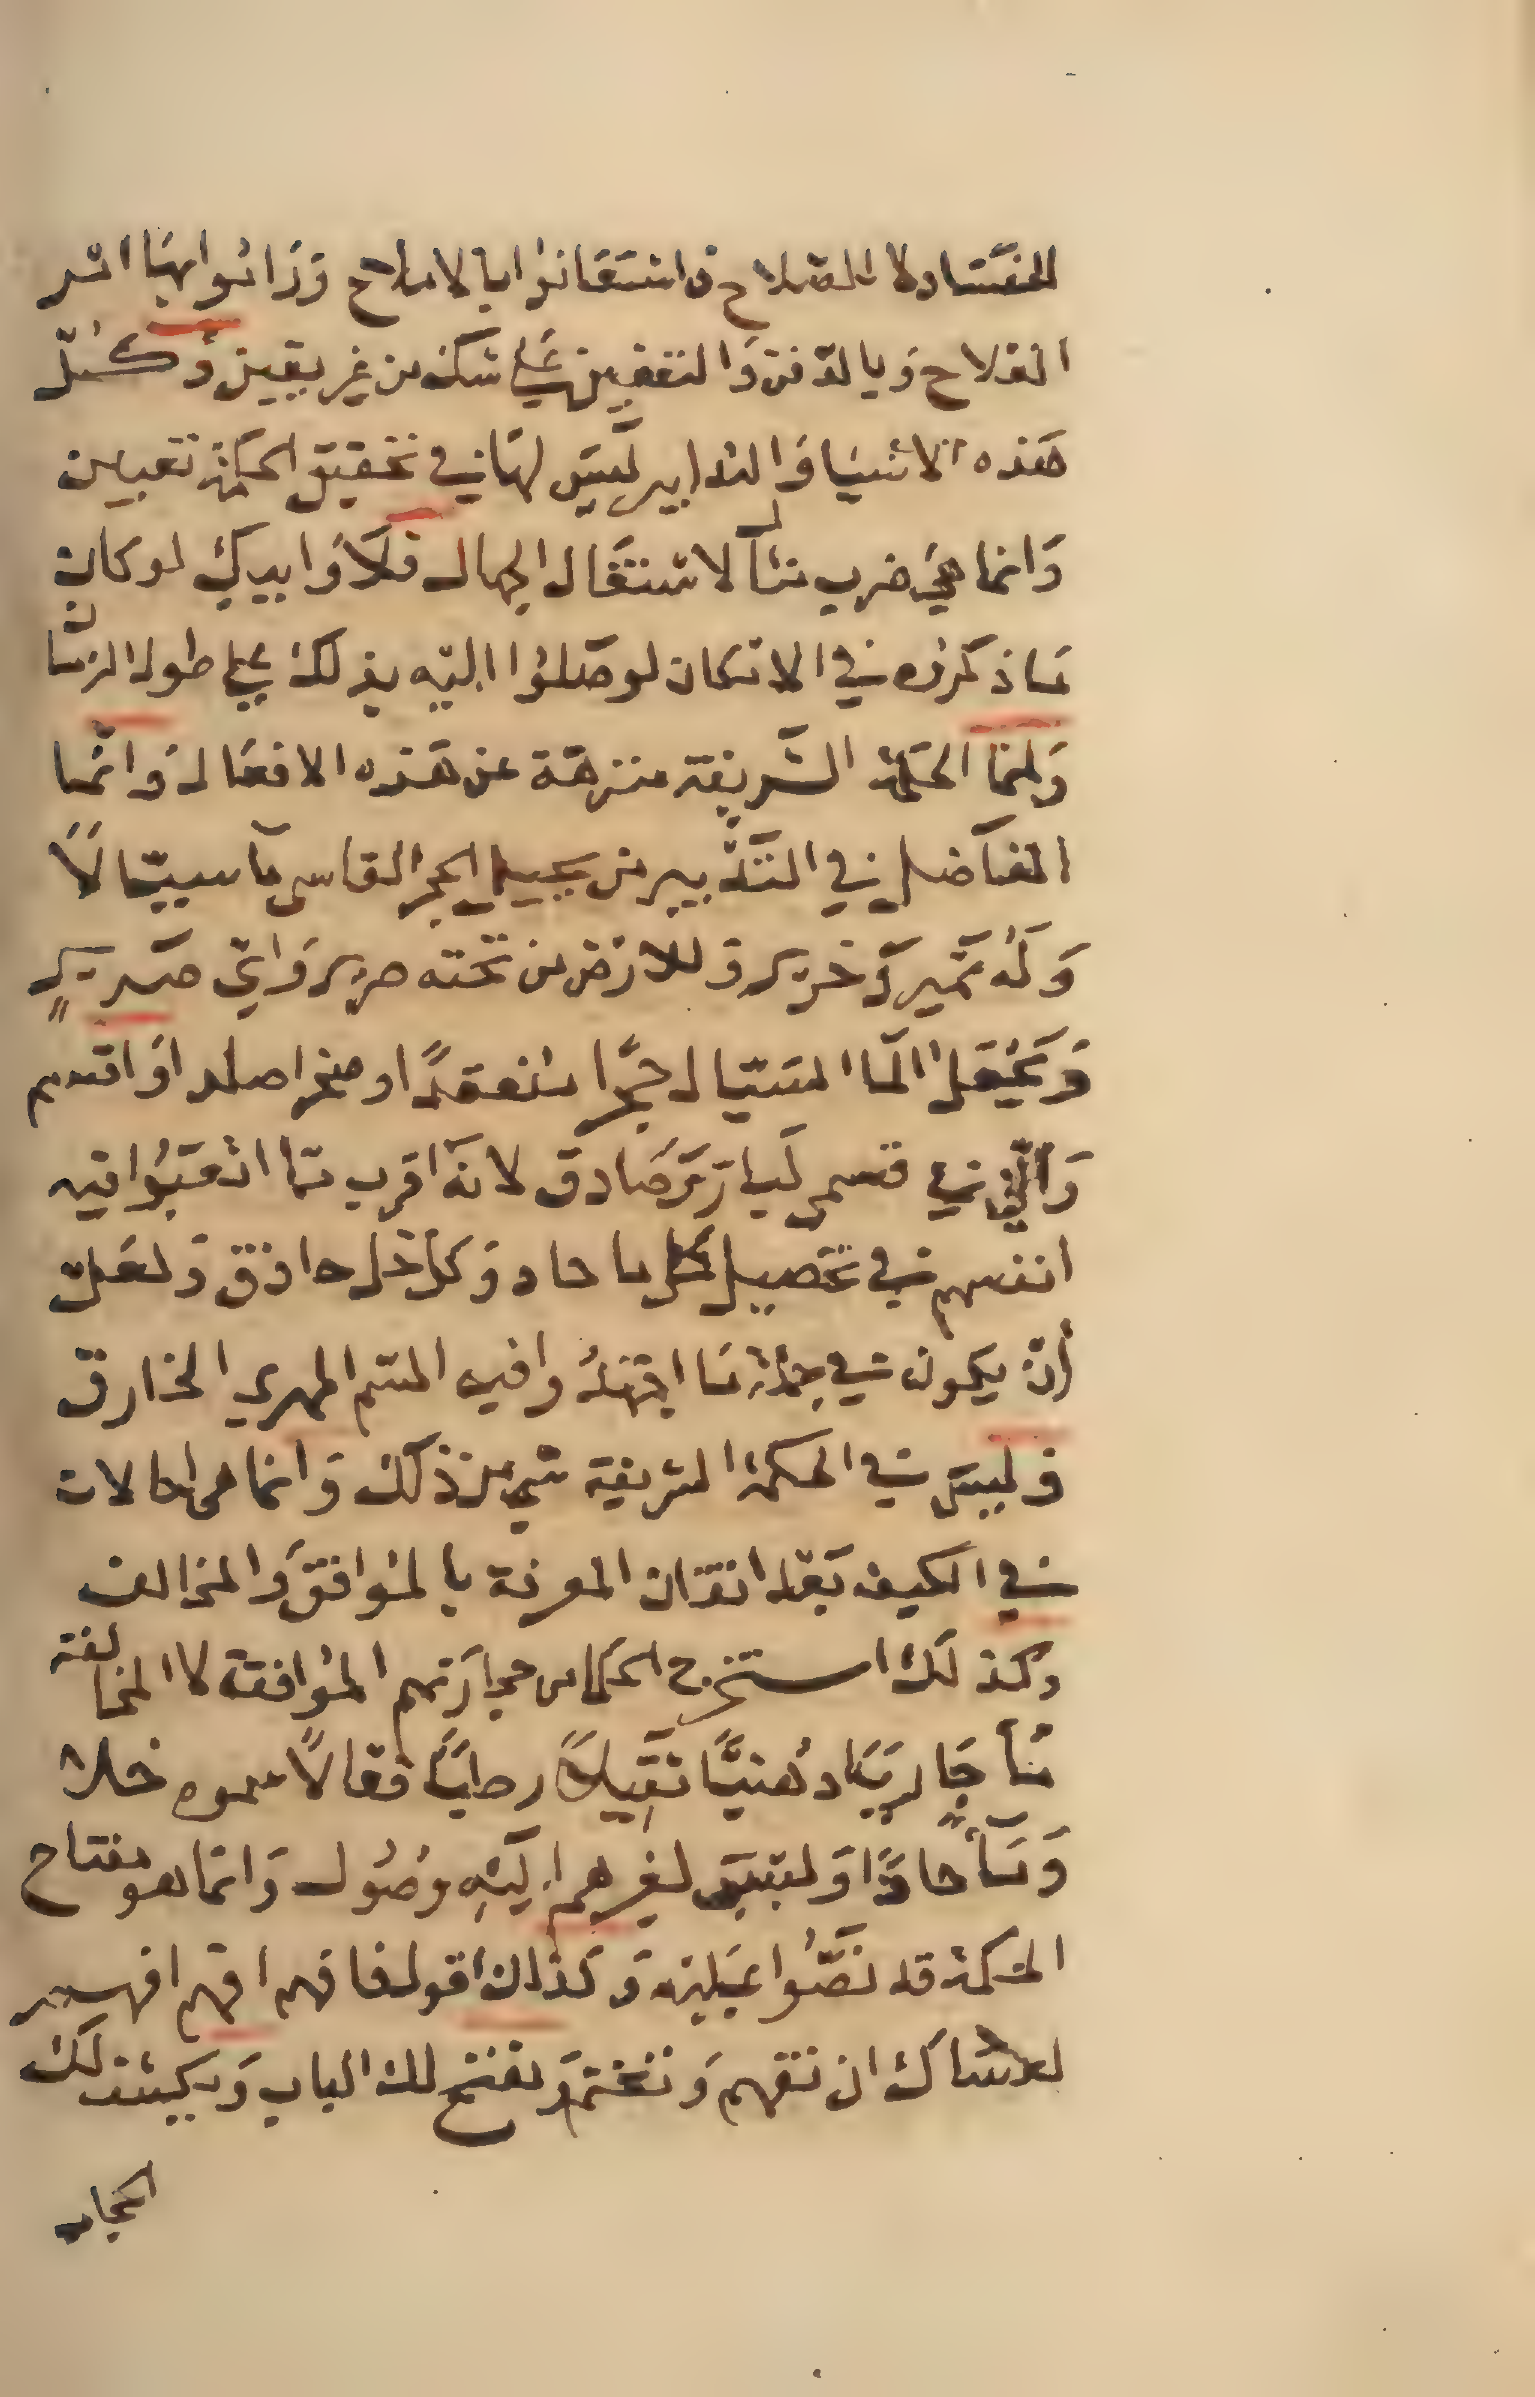 للفساد لا للصلاح فاستعانوا بالاملاح وزانوا بها اشر
الفلاح وبالدفن والتعفين على شك من غير يقين وكل
هذه الاشيا والتدابير ليس لها في تحقيق الحكمة تعيين
وانما هي ضرب مثال لاشتغال الجهال فلا وابيك لو كان
ماذكروه في الامكان لوصلوا اليه بذلك على طول الزمان
ولكن الحكمة الشريفة منزهة عن هذه الافعال وانما
الفاضل في التدبير من يحيل الحجر القاسي ماسيالا
وله تمير وخرير وللارض من تحته صرير واي صرير
ويعقد الما السيال حجرا منعقدا او صخرا صلدا واقسم
والله في قسمي لبار وصادق لانه اقرب مما اتعبوا فيه
انفسهم في تحصيل كل ما حاد وكل خل حاذق ولعل
ان يكون في جملة ما اجتهدوا فيه السم المهري الخارق
وليس في الحكمة الشريفة شي من ذلك وانما هي احالات
في الكيف بعد اتقان المعرفة بالموافق والمخالف
وكذلك استخرج الحكما من حجارتهم الموافقة لا المخالفة
مأ جاريا دهنيا ثقيلا رطبا فعالا سموه خلا
ومأ حادا وليس لغيرهم اليه وصول وانما هو مفتاح
الحكمة قد نصوا عليه وكذلك اقول فافهم افهم افهم
لعساك ان تفهم وتغتم ويفتح لك الباب ويكشف لك
الحجاب